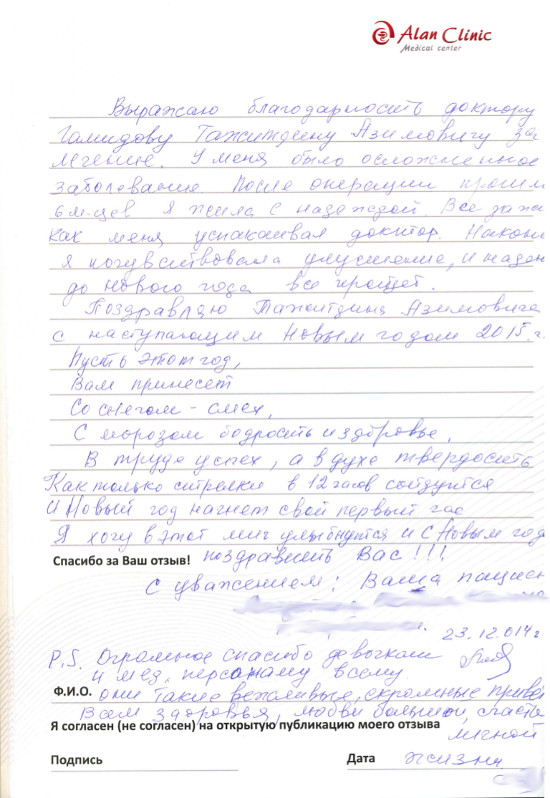 Alan Clinic
Medical center
Выражаю благодарность доктору
Гамидову Тажитдину Азимовичу за
лечение. У меня было осложненное
заболевание. После операции прошл
6 м-цев я жила с надеждой. Все
как меня успакаивал доктор. Након
я почувствовала улучшение, и
до нового года все пройдет.
Поздравляю Тажитдина Азимовича
с наступающим Новым годом 2015 г.
Пусть этот год,
Вам принесет
Со снегом - смех,
С морозом бодрость и здоровье,
В труде успех, а в духе твердость
Как только стрелки в 12 часов сойдутся
И Новый год начнет свой первый час
Я хочу в этот миг улыбнутся и с Новым год
Спасибо за Ваш отзыв! поздравить Вас!!!
С уважением: Ваша пациен
23.12.014г
P.S. Огромное спасибо девочкам
и мед. персоналу всему
Ф.И.О. они такие вежливые, скромные приве
Всем здоровья, любви большой, счастья
Я согласен (не согласен) на открытую публикацию моего отзыва
личной
Подпись Дата жизни